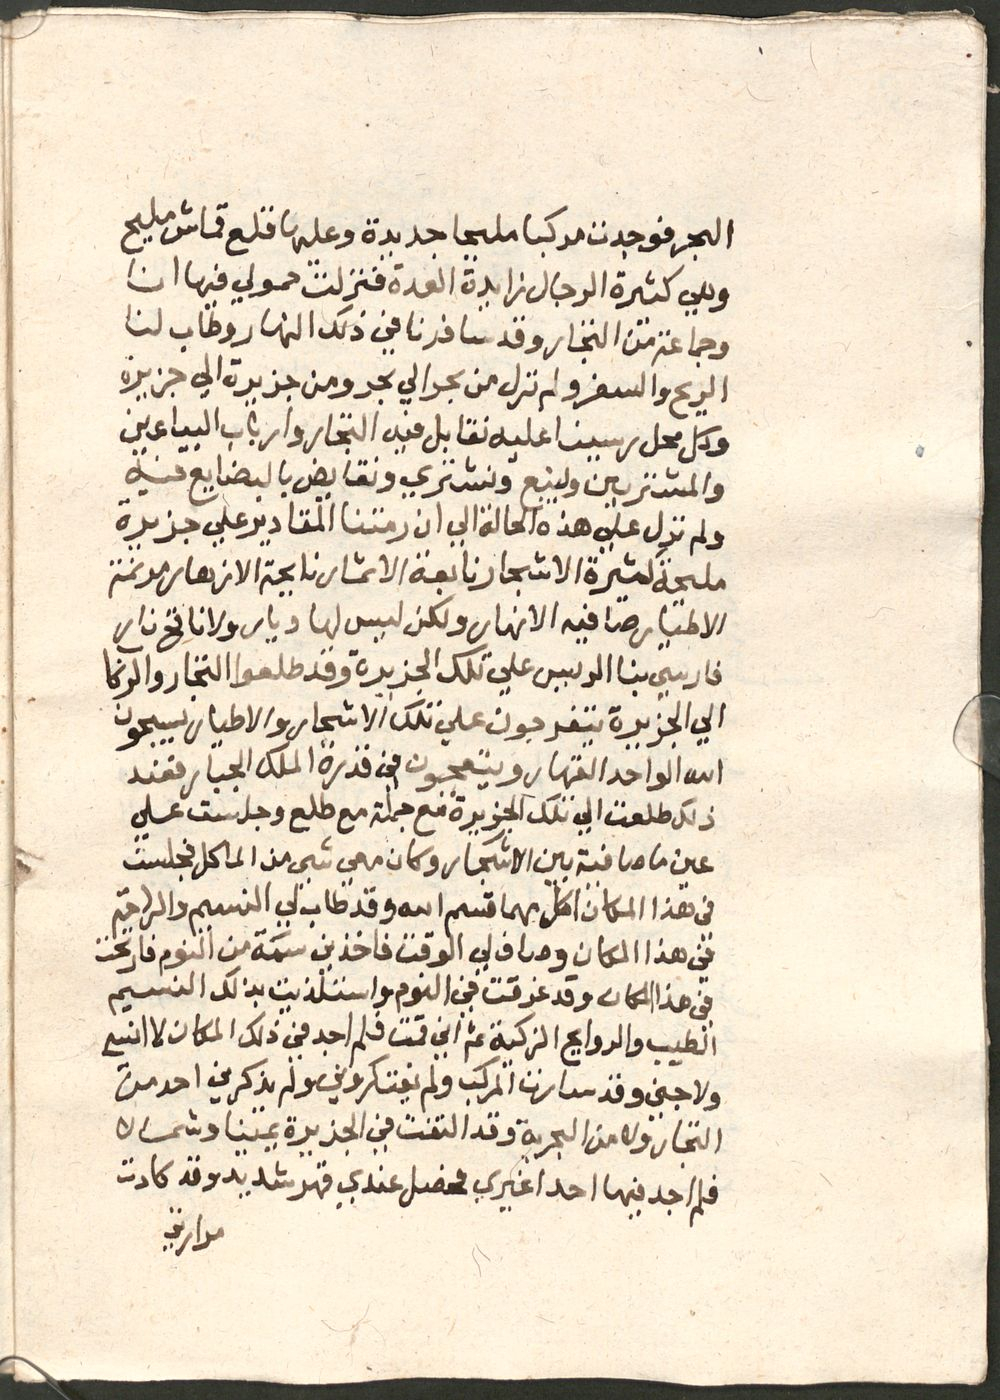 البحر فوجدت مركبا مليحا جديدة وعليها قلع قماش مليح
وهي كثيرة الرجال زايدة العدة فنزلت حمولي فيها انا
وجماعة من التجار وقد سافرنا في ذلك النهار وطاب لنا
الريح والسفر ولم نزل من بحر الي بحر ومن جزيرة الي جزيرة
وكل محل رسينا عليه نقابل فيه التجار وارباب البياعين
والمشتريين ونبيع ونشتري ونقايض بالبضايع فيه
ولم نزل علي هذه الحالة الي ان رمتنا المقادير علي جزيرة
مليحة كثيرة الاشجار نابعة الاثمار نايحة الازهار مرنمة
الاطيار صافيه الانهار ولكن ليس لها ديار ولا نافخ نار
فارسي بنا الريس علي تلك الجزيرة وقد طلعوا التجار والركا
الي الجزيرة يتفرجون علي تلك الاشجار والاطيار يسبحون
الله الواحد القهار ويتعجبون في قدرة الملك الجبار فعند
ذلك طلعت الي تلك الجزيرة مع جملة مع طلع وجلست علي
عين ما صافية بين الاشجار وكان معي شي من الماكل فجلست
في هذا المكان اكل مهما قسم الله وقد طاب لي النسيم والراحة
في هذا المكان وصاف لي الوقت فاخذني سكة من النوم فارتحت
في هذا المكان وقد غرقت في النوم واستلذيت بذلك النسيم
الطيب والروايح الزكية ثم اني قمت فلم اجد في ذلك المكان لا انسي
ولا جني وقد سارت المركب ولم يفتكروني ولم يذكرني احد من
التجار ولا من البحرية وقد التفت في الجزيرة يمينا وشمالا
فلم اجد فيها احدا غيري فحصل عندي قهر شديد وقد كادت
مرارتي